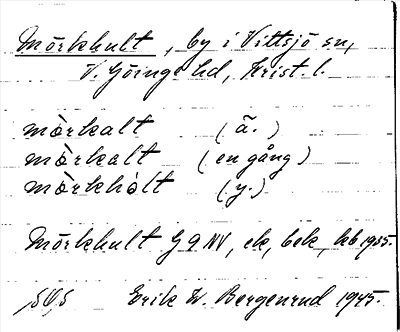 Mörkhult, by i Vittsjö sn,
V. Göinge hd, Krist. l.
mòrkalt (ä.)
mòrkalt (en gång)
mòrkhòlt (y.)
Mörkhult G 9 NV, ek, bek, kb 1935.
Erik W. Bergenrud 1945.